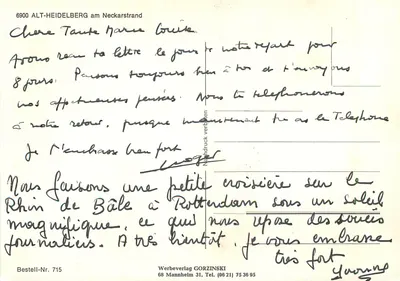 6900 ALT-HEIDELBERG am Neckarstrand
Chère Tante Marie Louise
Avons reçu ta lettre le jour de notre départ pour
8 jours. Pensons toujours bien à toi et t'envoyons
nos affectueuses pensées. Nous te telephonerons
à notre retour, puisque maintenant tu as le Telephone
Je t'embrasse bien fort
Roger
Nous faisons une petite croisière sur le
Rhin de Bâle à Rotterdam sous un soleil
magnifique, ce qui nous repose des soucis
journaliers. A très bientôt, je vous embrasse
très fort
Yvonne
Bestell-Nr. 715
Werbeverlag GORZINSKI
68 Mannheim 31, Tel. (06 21) 75 36 65